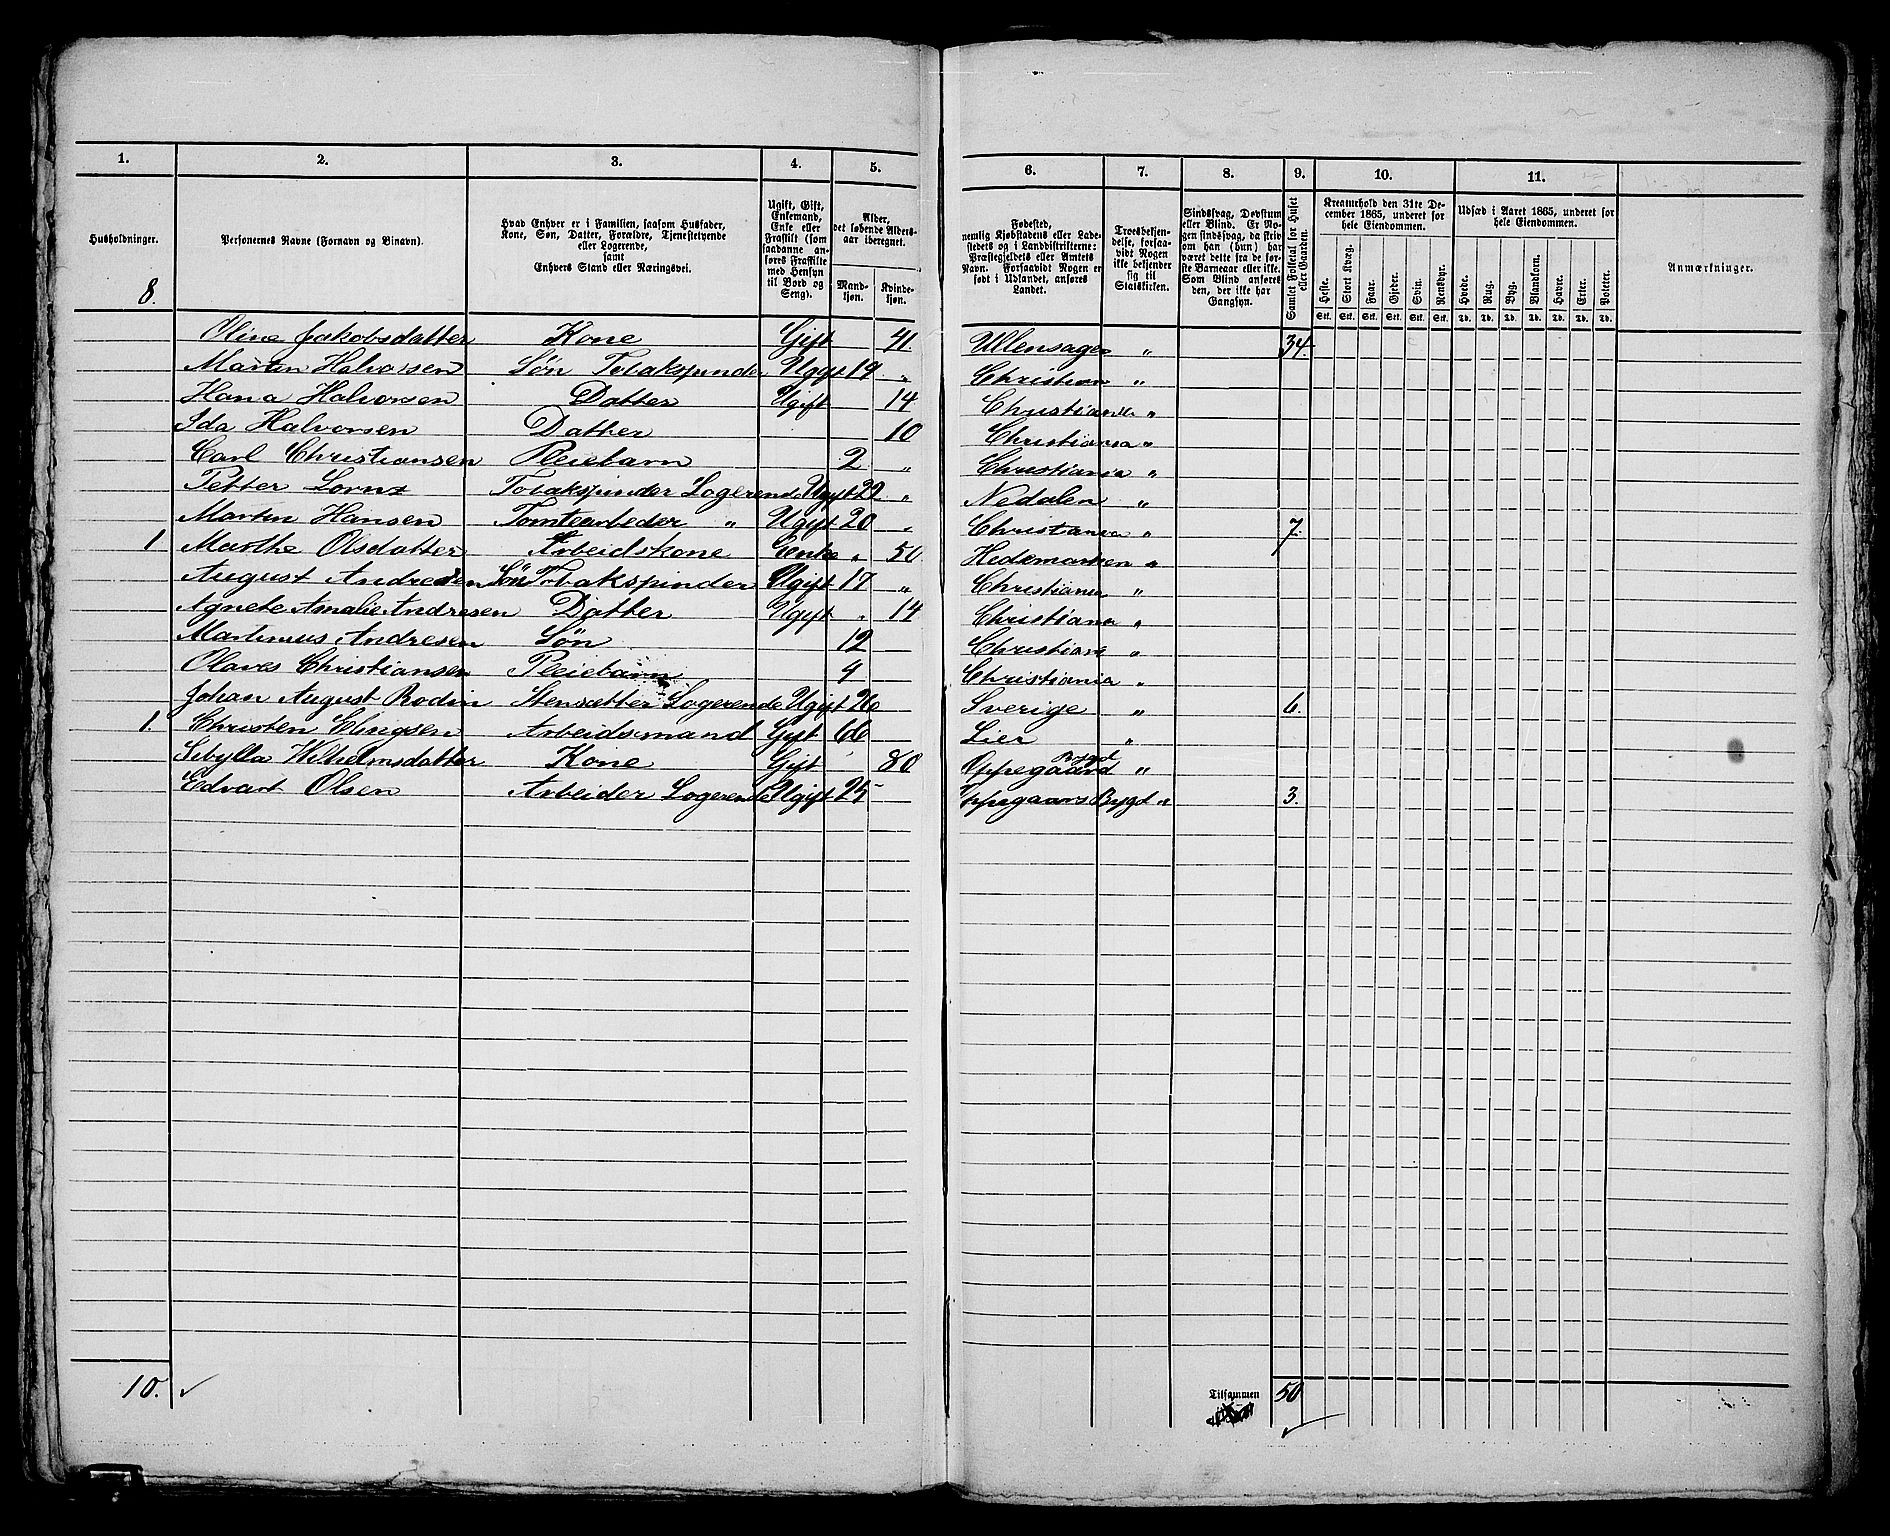 1. 2. 3. 4. 5. 6. 7. 8. 9. 10. 11.
Husholdninger.
Personernes Navne (Fornavn og Binavn).
Hvad Enhver er i Familien, saasom Husfader, Kone, Søn, Datter, Forældre, Tjenestetyende eller Logerende, samt Enhvers Stand eller Næringsvei.
Ugift, Gift, Enkemand, Enke eller Fraskilt (som saadanne anføres Fraskilte med Hensyn til Bord og Seng).
Alder, det løbende Alders-aar iberegnet.
Mand-kjøn. Kvinde-kjøn.
Fødested, nemlig Kjøbstadens eller Ladestedets og i Landdistrikterne: Præstegjeldets eller Amtets Navn. Forsaavidt Nogen er født i Udlandet, anføres Landet.
Troesbekjendelse, forsaavidt Nogen ikke bekjender sig til Statskirken.
Sindssvag, Døvstum eller Blind. Er Nogen sindssvag, da skrives om han (hun) har været dette fra de første Barneaar eller ikke. Som Blind anføres den, der ikke har Gangsyn.
Samlet Folketal for Huset eller Gaarden.
Kreaturhold den 31te December 1865, underet for hele Eiendommen.
Heste. Stort Kvæg. Faar. Gjeder. Svin. Rensdyr.
Stk. Stk. Stk. Stk. Stk. Stk.
Udsæd i Aaret 1865, underet for hele Eiendommen.
Hvede. Rug. Byg. Blandkorn. Havre. Erter. Poteter.
Td. Td. Td. Td. Td. Td. Td.
Anmærkninger.
8.
Oline Jakobsdatter Kone Gift 41 Ullensager " 34.
Martin Halvorsen Søn Tobakspinder Ugift 19 " Christian "
Hana Halvorsen Datter Ugift 14 Christiania "
Ida Halvorsen Datter 10 Christiania "
Carl Christiansen Pleiebarn 2 " Christiania "
Petter Lornz Tobakspinder Logerende Ugift 20 " Nedalen "
Martin Hansen Tomtearbeder " Ugift 20 " Christiania " 7.
1 Marthe Olsdatter Arbeidskone Enke " 50 Hedemarken "
August Andresen Søn Tobakspinder Ugift 17 " Christiania "
Agnete Amalie Andresen Datter Ugift " 14 Christiania "
Martinius Andresen Søn 12 Christiania "
Olaves Christiansen Pleiebarn 4 Christiania "
Johan August Rodin Stensetter Logerende Ugift 26 Sverige " 6.
1. Christen Elingsen Arbeidsmand Gift 66 Lier "
Sibylla Wilhelmsdatter Kone Gift 80 Oppegaard Bygd "
Edvart Olsen Arbeider Logerende Ugift 25 Oppegaars Bygd " 3.
10. ✓
Tilsammen 50
✓